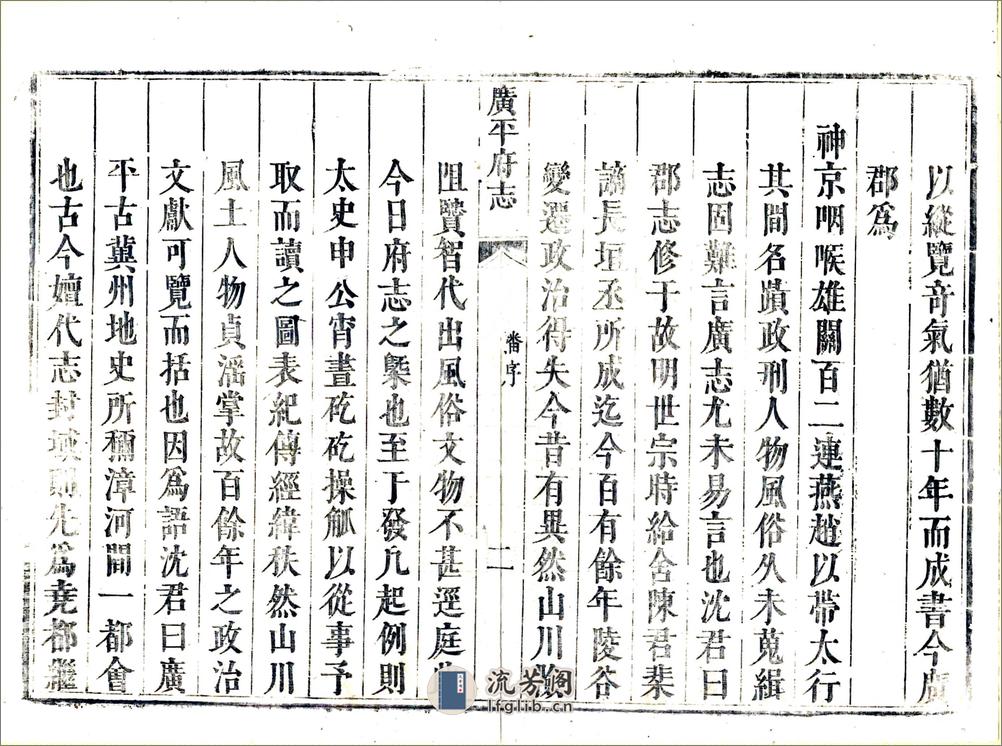 以縱覽奇氣猶數十年而成書今廣
郡爲
神京咽喉雄關百二連燕趙以帶太行
其間名蹟政刑人物風俗从未蒐緝
志固難言廣志尤未易言也沈君曰
郡志修于故明世宗時給舍陳君棐
謫長垣丞所成迄今百有餘年陵谷
變遷政治得失今昔有異然山川
廣平府志
序
二
阻賢智代出風俗文物不甚逕庭
今日府志之槩也至于發凢起例則
太史申公宵晝矻矻操觚以從事予
取而讀之圖表紀傳經緯秩然山川
風土人物貞滛掌故百餘年之政治
文獻可覽而括也因爲語沈君曰廣
平古冀州地史所稱漳河間一都會
也古今嬗代志封域則先爲堯都繼
流芳阁
lfglib.cn